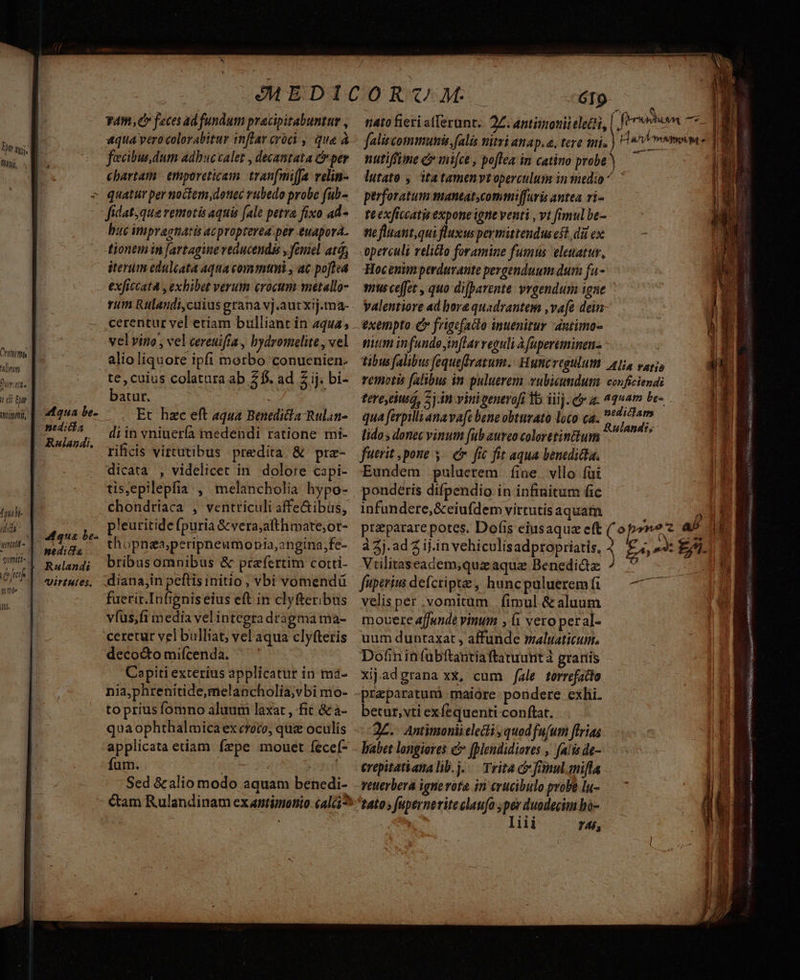 MEDICORUM. 619
ram, & feces ad fundum præcipitabuntur,
aqua vero colorabitur instar croci, quæ à
fæcibus, dum adhuc calet, decantata & per
chartam emporeticam transmissa relin-
quatur per noctem, donec rubedo probe sub-
sidat, quæ remotis aquis sale petræ fixo ad-
huc impræegnatis ac propterea per euaporа-
tionem in sartagine reducendis, semel atq;
iterum edulcata aqua communi, ac postea
exsiccata, exhibet verum crocum metallo-
rum Rulandi, cuius grana vj. aut xij. ma-
cerentur vel etiam bulliant in aqua,
vel vino, vel cereuisia, hydromelite, vel
alio liquore ipsi morbo conuenien-
te, cuius colatura ab ℥ß. ad ℥ij. bi-
batur.
Et hæc est aqua Benedicta Rulan-
di in vniuersa medendi ratione mi-
rificis virtutibus prædita & præ-
dicata, videlicet in dolore capi-
tis, epilepsia, melancholia hypo-
chondriaca, ventriculi affectibus,
pleuritide spuria & vera, asthmate, or-
thopnæa, peripneumonia, angina, fe-
bribus omnibus & præsertim coti-
diana, in pestis initio, vbi vomendū
fuerit. Insignis eius est in clysteribus
vsus, si media vel integra dragma ma-
ceretur vel bulliat, vel aqua clysteris
decocto miscenda.
Capiti exterius applicatur in ma-
nia, phrenitide, melancholia, vbi mo-
to prius somno aluum laxat, fit & a-
qua ophthalmica ex croco, quæ oculis
applicata etiam sæpe mouet feces-
sum.
Sed & alio modo aquam benedi-
ctam Rulandinam ex antimonio calci-
Aqua be-
nedicta
Rulandi.
Aquæ be-
nedictæ
Rulandi
virtutes.
nato fieri asserunt. ℞. antimonii electi,
salis communis, salis nitri anap. æ. tere mi-
nutissime & misce, postea in catino probe
lutato, ita tamen vt operculum in medio
perforatum maneat, commissuris antea ri-
te exsiccatis expone igne venti, vt simul be-
ne fluant, qui fluxus permittendus est, dū ex
operculi relicto foramine fumus eleuatur.
Hoc enim perdurante pergendum dum fu-
mus cesset, quo disparente vrgendum igne
valentiore ad horæ quadrantem, vase dein
exempto & frigefacto inuenitur antimo-
nium in fundo, instar reguli à supereminen-
tibus salibus sequestratum. Hunc regulum
remotis salibus in puluerem rubicundum
tere, eiusq; ℥j. in vini generosi ℔ iiij. & a-
qua serpilli ana vase bene obturato loco ca-
lido, donec vinum sub aureo colore tinctum
fuerit, pone, & sic fit aqua benedicta.
Eundem puluerem sine vllo sui
ponderis dispendio in infinitum sic
infundere, & eiusdem virtutis aquam
præparare potes. Dosis eius aquæ est
à ʒj. ad ℥ij. in vehiculis ad propriatis.
Vtilitas eadem, quæ aquæ Benedictæ
superius descriptæ, hunc puluerem si
velis per vomitum simul & aluum
mouere affunde vinum, si vero per al-
uum duntaxat, affunde maluaticum.
Dosin in substantia statuunt à granis
xij ad grana xx, cum sale torrefacto
præparatum maiore pondere exhi-
betur, vti exsequenti constat.
℞. Antimonii electi, quod fusum strias
habet longiores & splendidiores, salis de-
crepitati ana lib. j. Trita & simul mista
reuerbera igne rotæ in crucibulo probe lu-
tato, superne rite clauso, per duodecim ho-
Alia ratio
conficiendi
aquam be-
nedictam
Rulandi.
Iiii
ras,